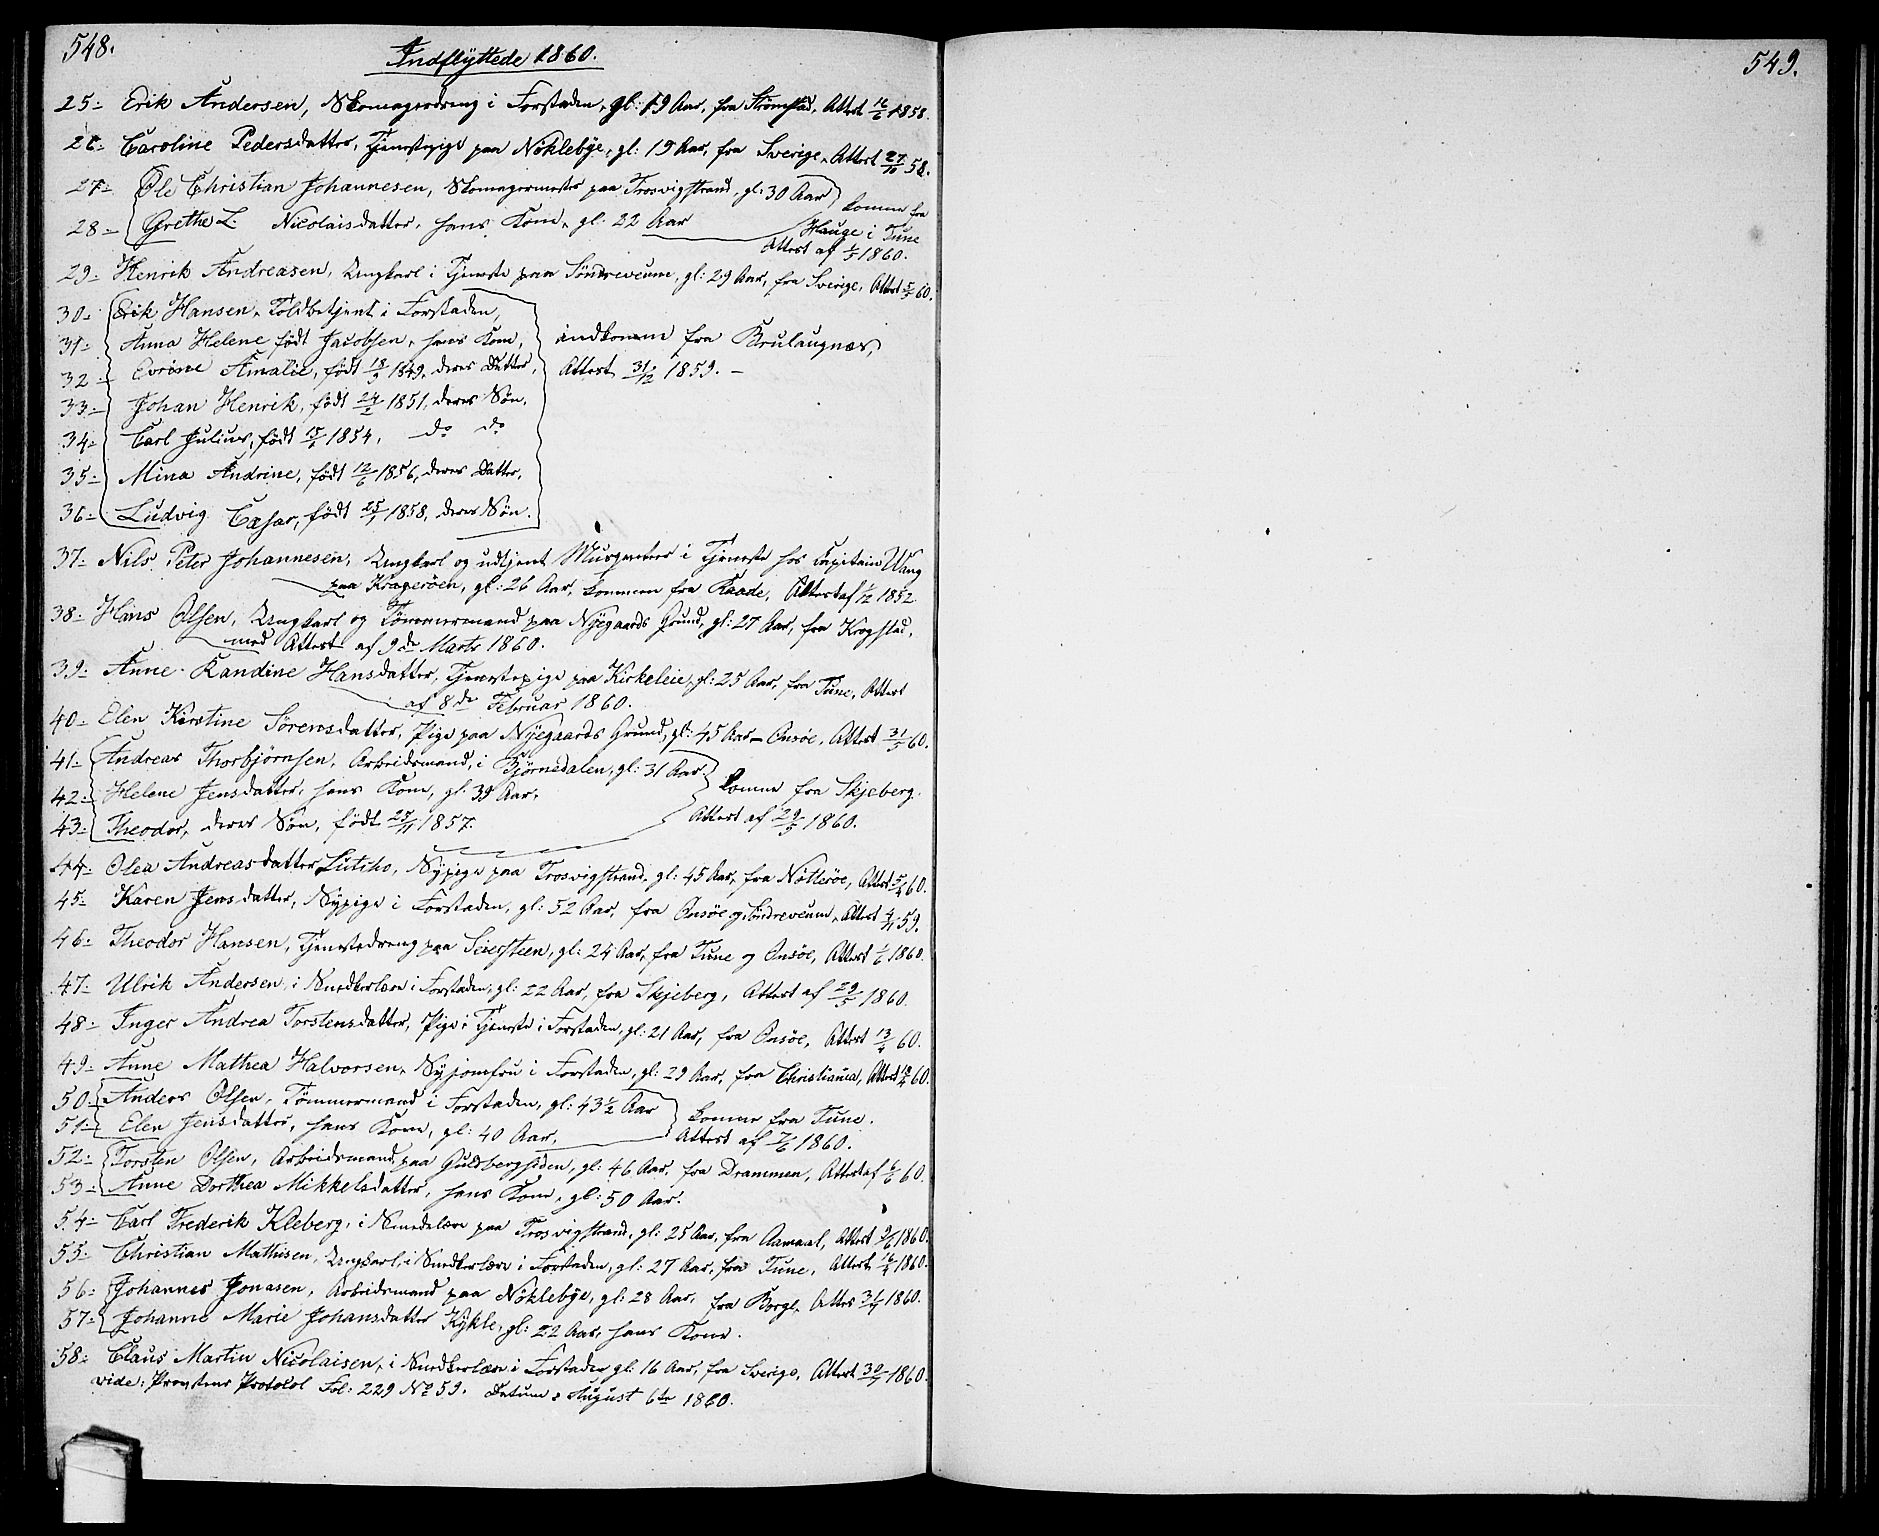 548.
Indflyttede 1860.
25 - Erik Andersen, Skomagerdreng i Forstaden, gl: 19 Aar, fra Strömstad, Attest 16/6 1858.
26 - Caroline Pedersdatter, Tjenestepige paa Nöklebye, gl: 19 Aar, fra Sverige, Attest 27/10 58.
27 - Ole Christian Johannesen, Skomagermester paa Trosvigstrand, gl: 30 Aar
28 - Grethe L. Nicolaisdatter, hans Kone, gl: 22 Aar
komne fra Hauge i Tune
Attest af 1860.
29 - Henrik Andreasen, Ungkarl i Tjeneste paa Söndreveum, gl: 29 Aar, fra Sverige, Attest 60.
30 - Erik Hansen, Toldbetjent i Forstaden,
31 - Anna Helene født Jacobsen, hans Kone,
32 - Evrine Amalie, født 18/9 1849, deres Datter,
33 - Johan Henrik, født 24/2 1851, deres Søn.
34 - Carl Julius, født 1854, do do
35 - Mina Andrine, født 12/6 1856, deres Datter,
36 - Ludvig Cæsar, født 25/1 1858, deres Søn.
indkomne fra
Attest 31/12 1859. -
37 - Nils Peter Johannesen, Ungkarl og udtjent Musqueteer i Tjeneste hos Capitain Wang
paa Kragerøen, gl: 26 Aar, kommen fra Raade, Attest af 1/12 1852.
38 - Hans Olsen, Ungkarl og Tømmermand paa Nyegaards Grund, gl: 27 Aar, fra Krogstad,
med Attest af 9de Marts 1860.
39 - Anne Randine Hansdatter, Tjenestepige paa Kirkeleie, gl: 25 Aar, fra Tune, Attest
af 8de Februar 1860.
40 - Elen Kirstine Sørensdatter, Pige paa Nyegaards Grund, gl: 45 Aar - Onsøe, Attest 31/5 60.
41 - Andreas Thorbjørnsen, Arbeidsmand, i Bjørnedalen, gl: 31 Aar
42 - Helene Jensdatter, hans Kone, gl: 39 Aar,
43 - Theodor, deres Søn, født 25/11 1857.
komne fra Skjeberg.
Attest af 29/5 1860.
44 - Olea Andreasdatter Lutiho, Sypige paa Trosvigstrand, gl: 45 Aar, fra Nøtterøe, Attest 5/4 60.
45 - Karen Jensdatter, Sypige i Forstaden, gl: 52 Aar, fra Onsøe og Söndreveum, Attest 4/11 59.
46 - Theodor Hansen, Tjenestedreng paa Seiersteen, gl: 24 Aar, fra Tune og Onsøe, Attest 1/6 1860.
47 - Ulrik Andersen, i Snedkerlære i Forstaden, gl: 22 Aar, fra Skjeberg, Attest af 29/5 1860.
48 - Inger Andrea Torstensdatter, Pige i Tjeneste i Forstaden, gl: 21 Aar, fra Onsøe, Attest 13/4 60.
49 - Anne Mathea Halvorsen, Syjomfru i Forstaden, gl: 29 Aar, fra Christiania, Attest 60.
50 - Anders Olsen, Tömmermand i Forstaden, gl: 43½ Aar
51 - Elen Jensdatter, hans Kone, gl: 40 Aar,
komne fra Tune.
Attest af 7/6 1860.
52 - Torsten Olsen, Arbeidsmand paa Guldbergsiden, gl: 46 Aar, fra Drammen, Attest af 60.
53 - Anne Dorthea Mikkelsdatter, hans Kone, gl: 50 Aar.
54 - Carl Frederik Kleberg, i Smedelære paa Trosvigstrand, gl: 25 Aar, fra Aamaal, Attest 1860.
55 - Christian Mathisen, Ungkarl, i Snedkerlære i Forstaden, gl: 27 Aar, fra Tune, Attest 16/4 1860.
56 - Johannes Jonasen, Arbeidsmand paa Nöklebye, gl: 28 Aar, fra Borge, Attes 1860.
57 - Johanne Marie Johansdatter Kykle, gl: 22 Aar, hans Kone.
58 - Claus Martin Nicolaisen, i Snedkerlære i Forstaden gl: 16 Aar, fra Sverige, Attest 30/7 1860.
vide: Provstens Protocol Fol: 229 No 59. Datum: August 6te 1860.
549.